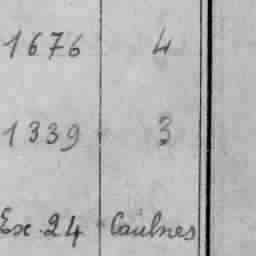 1676 4
1339 3
Ex. 24 Caulnes